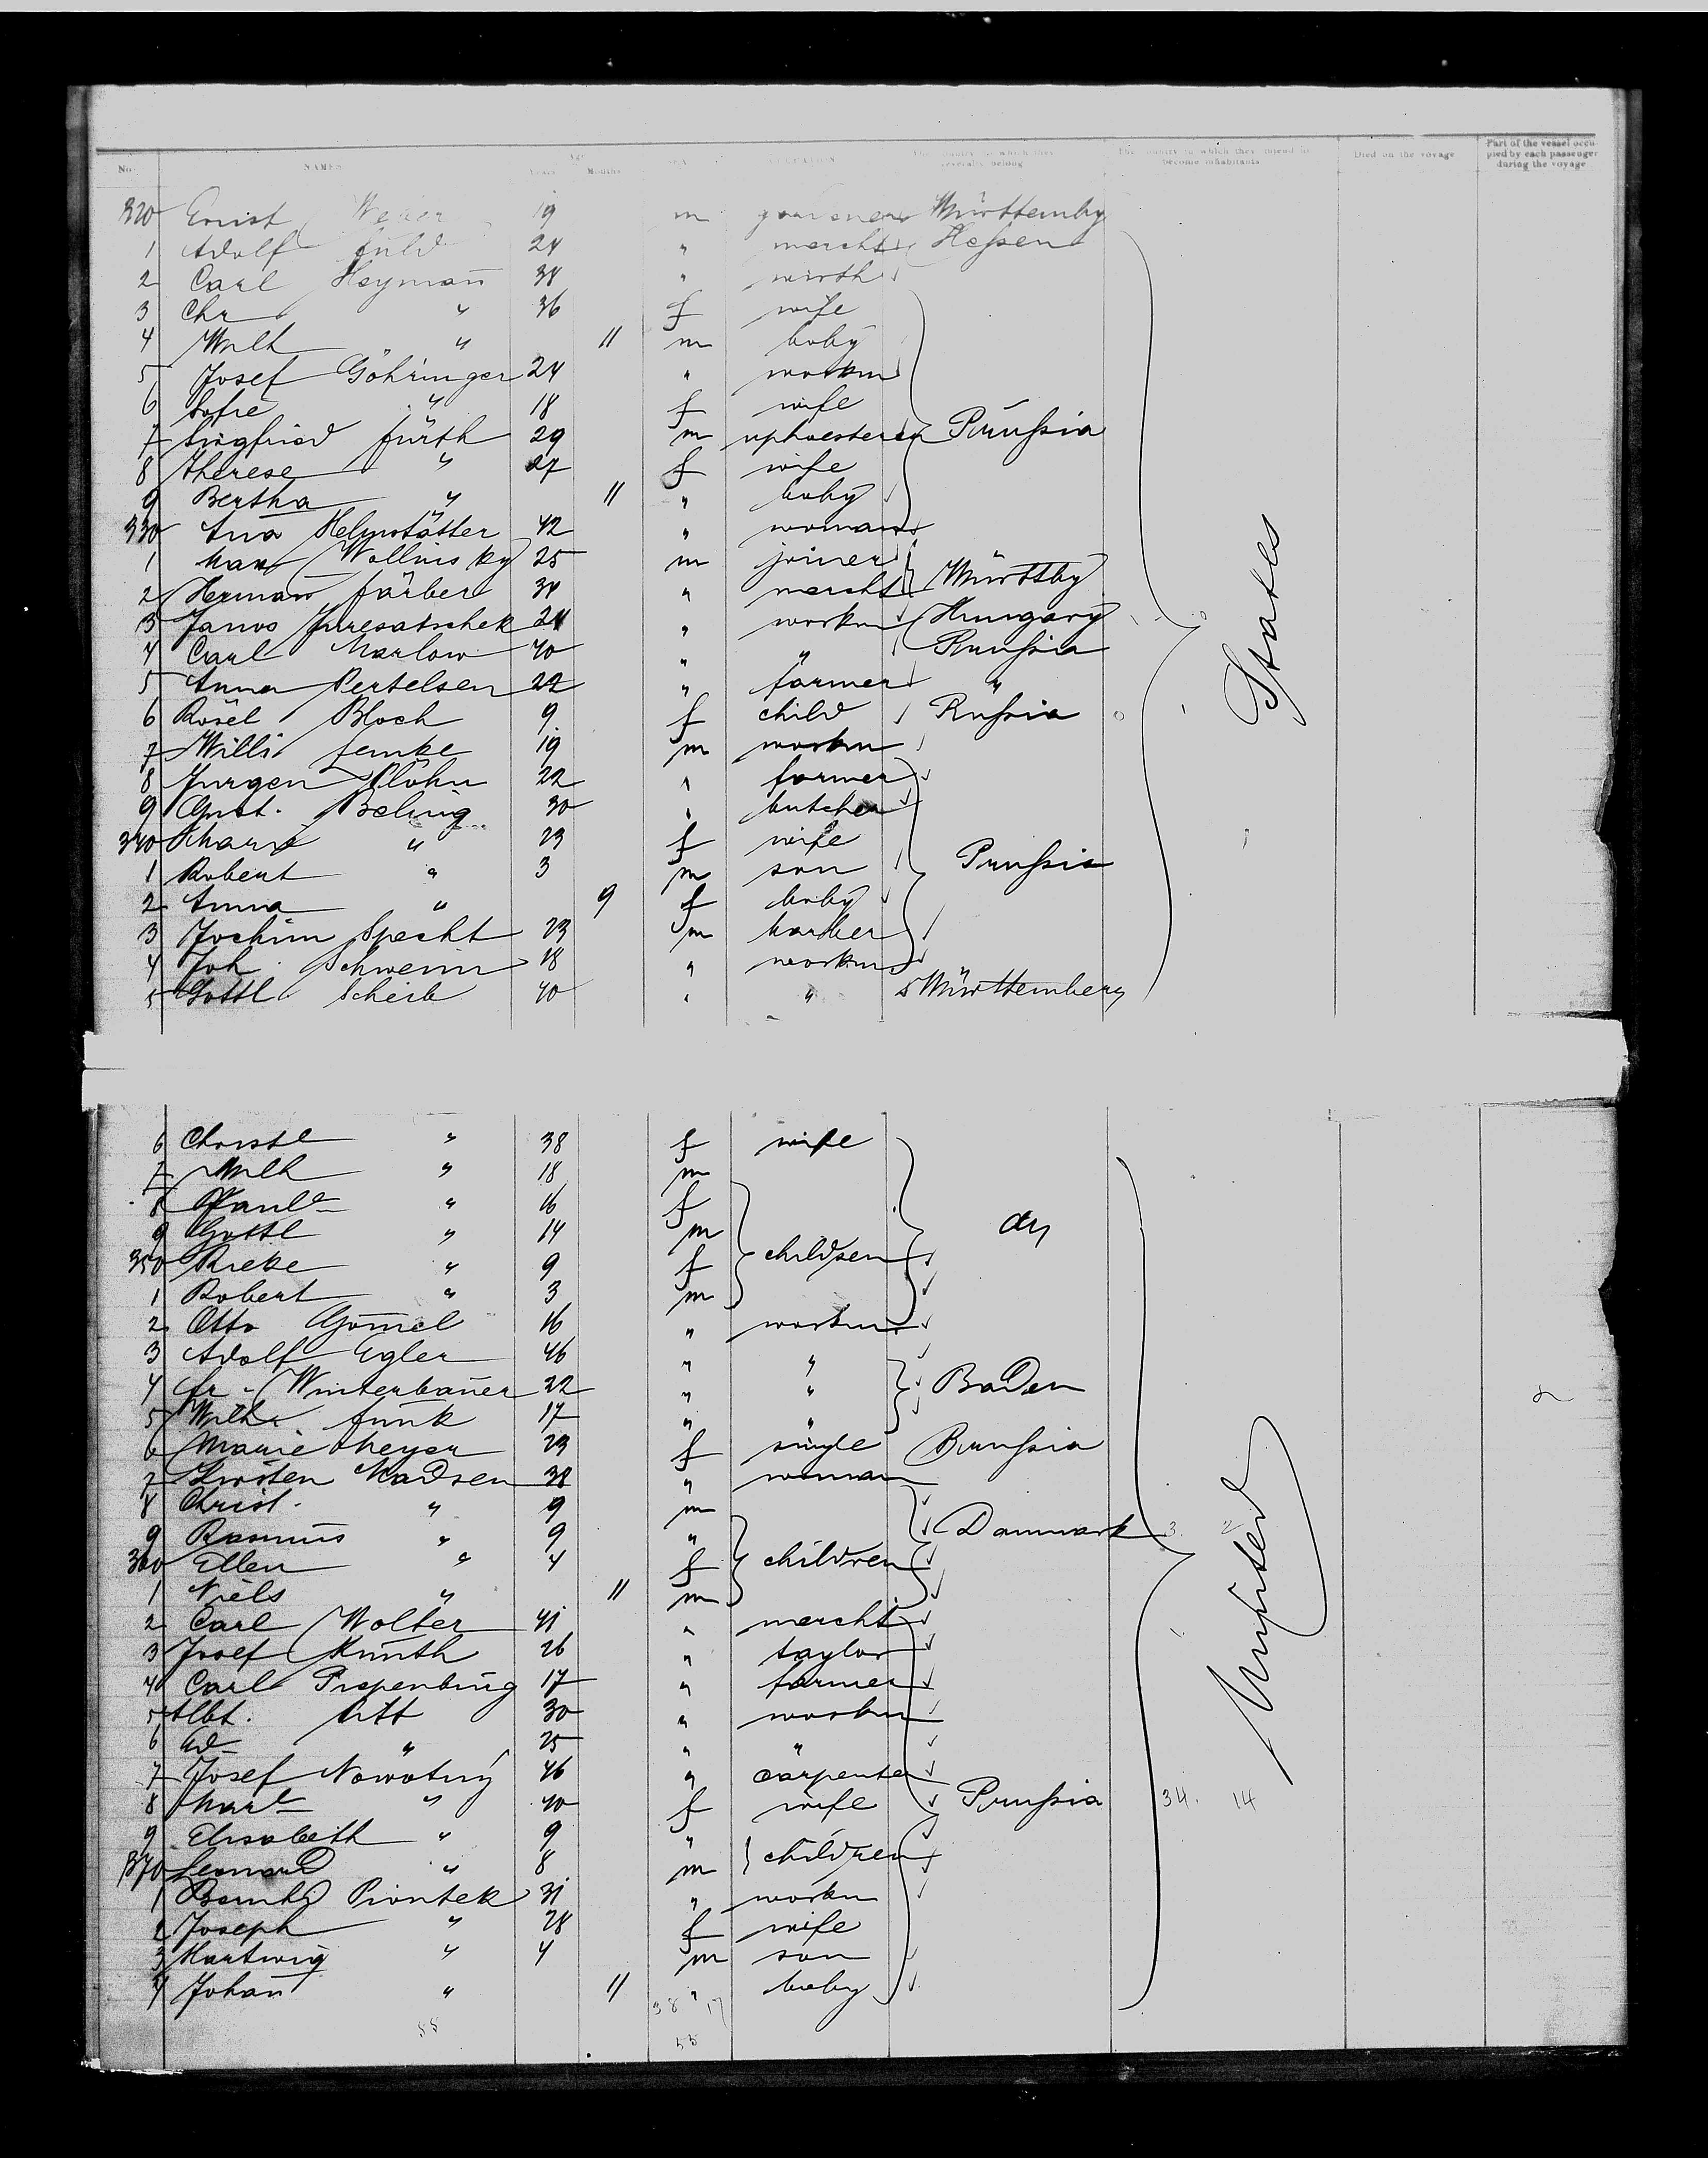 No. NAMES Age Years Months SEX OCCUPATION The country to which they severally belong The country to which they intend to become inhabitants Died on the voyage Part of the vessel occupied by each passenger during the voyage
320 Ernst Weber 19 m Württembg
1 Adolf Fuld 24 " mercht Hessen
2 Carl Heymañ 34 " wirth
3 Chr " 36 f wife
4 Wilh " 11 m baby
5 Josef Göhringer 24 " workm
6 Sofie " 18 f wife
7 Siegfried Fürth 29 m upholesterer Prussia
8 Therese " 27 f wife
9 Bertha " 11 " baby
330 Ana Helmstätter 42 " woman
1 Max Wollinsky 25 m joiner
2 Herman Färber 34 " mercht Württbg
3 Janos Juresatschek 24 " workm Hungary
4 Carl Marlow 40 " " Prussia
5 Anna Pertelsen 22 " farmer "
6 Rosel Bloch 9 f child Russia
7 Willi Femke 19 m workm
8 Jurgen Plöhn 22 " farmer
9 Gust. Beling 30 " butcher
340 Marie " 23 f wife
1 Robert " 3 m son Prussia
2 Anna " 9 f baby
3 Jochim Specht 23 m barber
4 Joh. Schwerin 18 " workm
5 Gottl Scheib 40 " " Württemberg
States
6 Christe " 38 f wife
7 Wilh " 18 m
8 Paule " 16 f
9 Gottl " 14 m dy
350 Rieke " 9 f children
1 Robert " 3 m
2 Otto Gom̄el 16 " workm
3 Adolf Egler 46 " "
4 Fr. Winterbauer 22 " " Baden
5 Wilh. Funk 17 " "
6 Marie Meyer 23 f single Prussia
7 Kirsten Madsen 38 " woman
8 Christ. " 9 m
9 Rasmus " 9 " Danmark 3. 2
360 Ellen " 4 f children
1 Niels " 11 m
2 Carl Wolter 41 " mercht
3 Josef Kunth 26 " taylor
4 Carl Piepenburg 17 " farmer
5 Albt. Litt 30 " workm
6 Ed " 25 " "
7 Josef Nowotny 46 " carpenter
8 Marie " 40 f wife Prussia 34. 14
9 Elisabeth " 9 "
370 Leonard " 8 m children
1 Bernhd Piontek 31 " workm
2 Joseph " 28 f wife
3 Hartwig " 4 m son
4 Johañ " 11 " baby
United
38 17
55
55